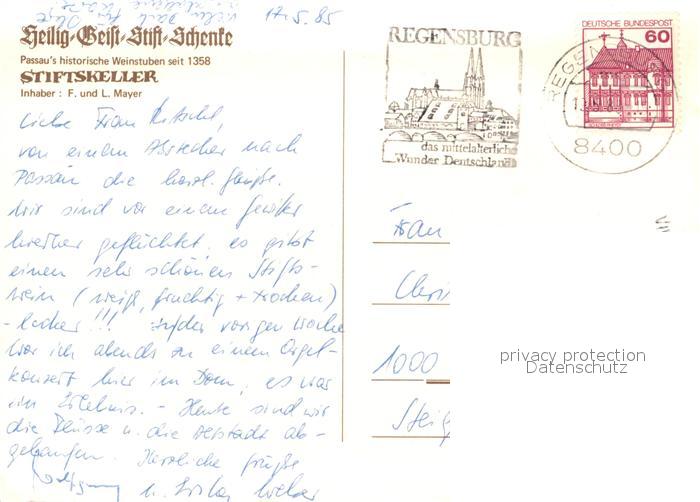 17.5.85
Heilig-Geist-Stift-Schenke
Passau's historische Weinstuben seit 1358
STIFTSKELLER
Inhaber : F. und L. Mayer
Liebe Frau
von einem Abstecher nach
Passau die herzl. Grüße.
Wir sind vor einem Gewitter
hierher geflüchtet. es gibt
einen sehr schönen Stifts-
wein (weiß, fruchtig + trocken)
- lecker!!! In der vorigen Woche
war ich abends zu einem Orgel-
konzert hier im Dom, es war
ein Erlebnis. - Heute sind wir
die Flüsse u. die Altstadt ab-
gelaufen. Herzliche Grüße
Wolfgang u.
REGENSBURG
das mittelalterliche
Wunder Deutschlands
DEUTSCHE BUNDESPOST
60
8400
Frau
Chri
1000
Steig
privacy protection
Datenschutz